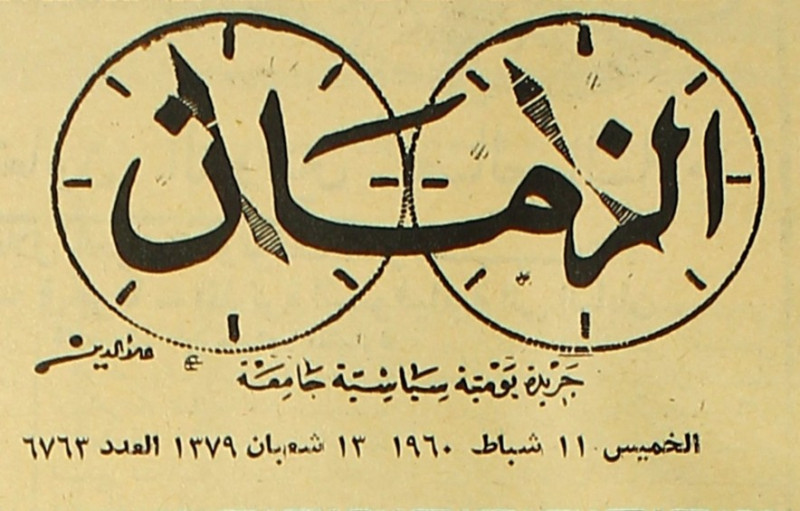 الزمان
صلاح الدين
جريدة يومية سياسية جامعة
الخميس ١١ شباط ١٩٦٠ ١٣ شعبان ١٣٧٩ العدد ٦٧٦٣